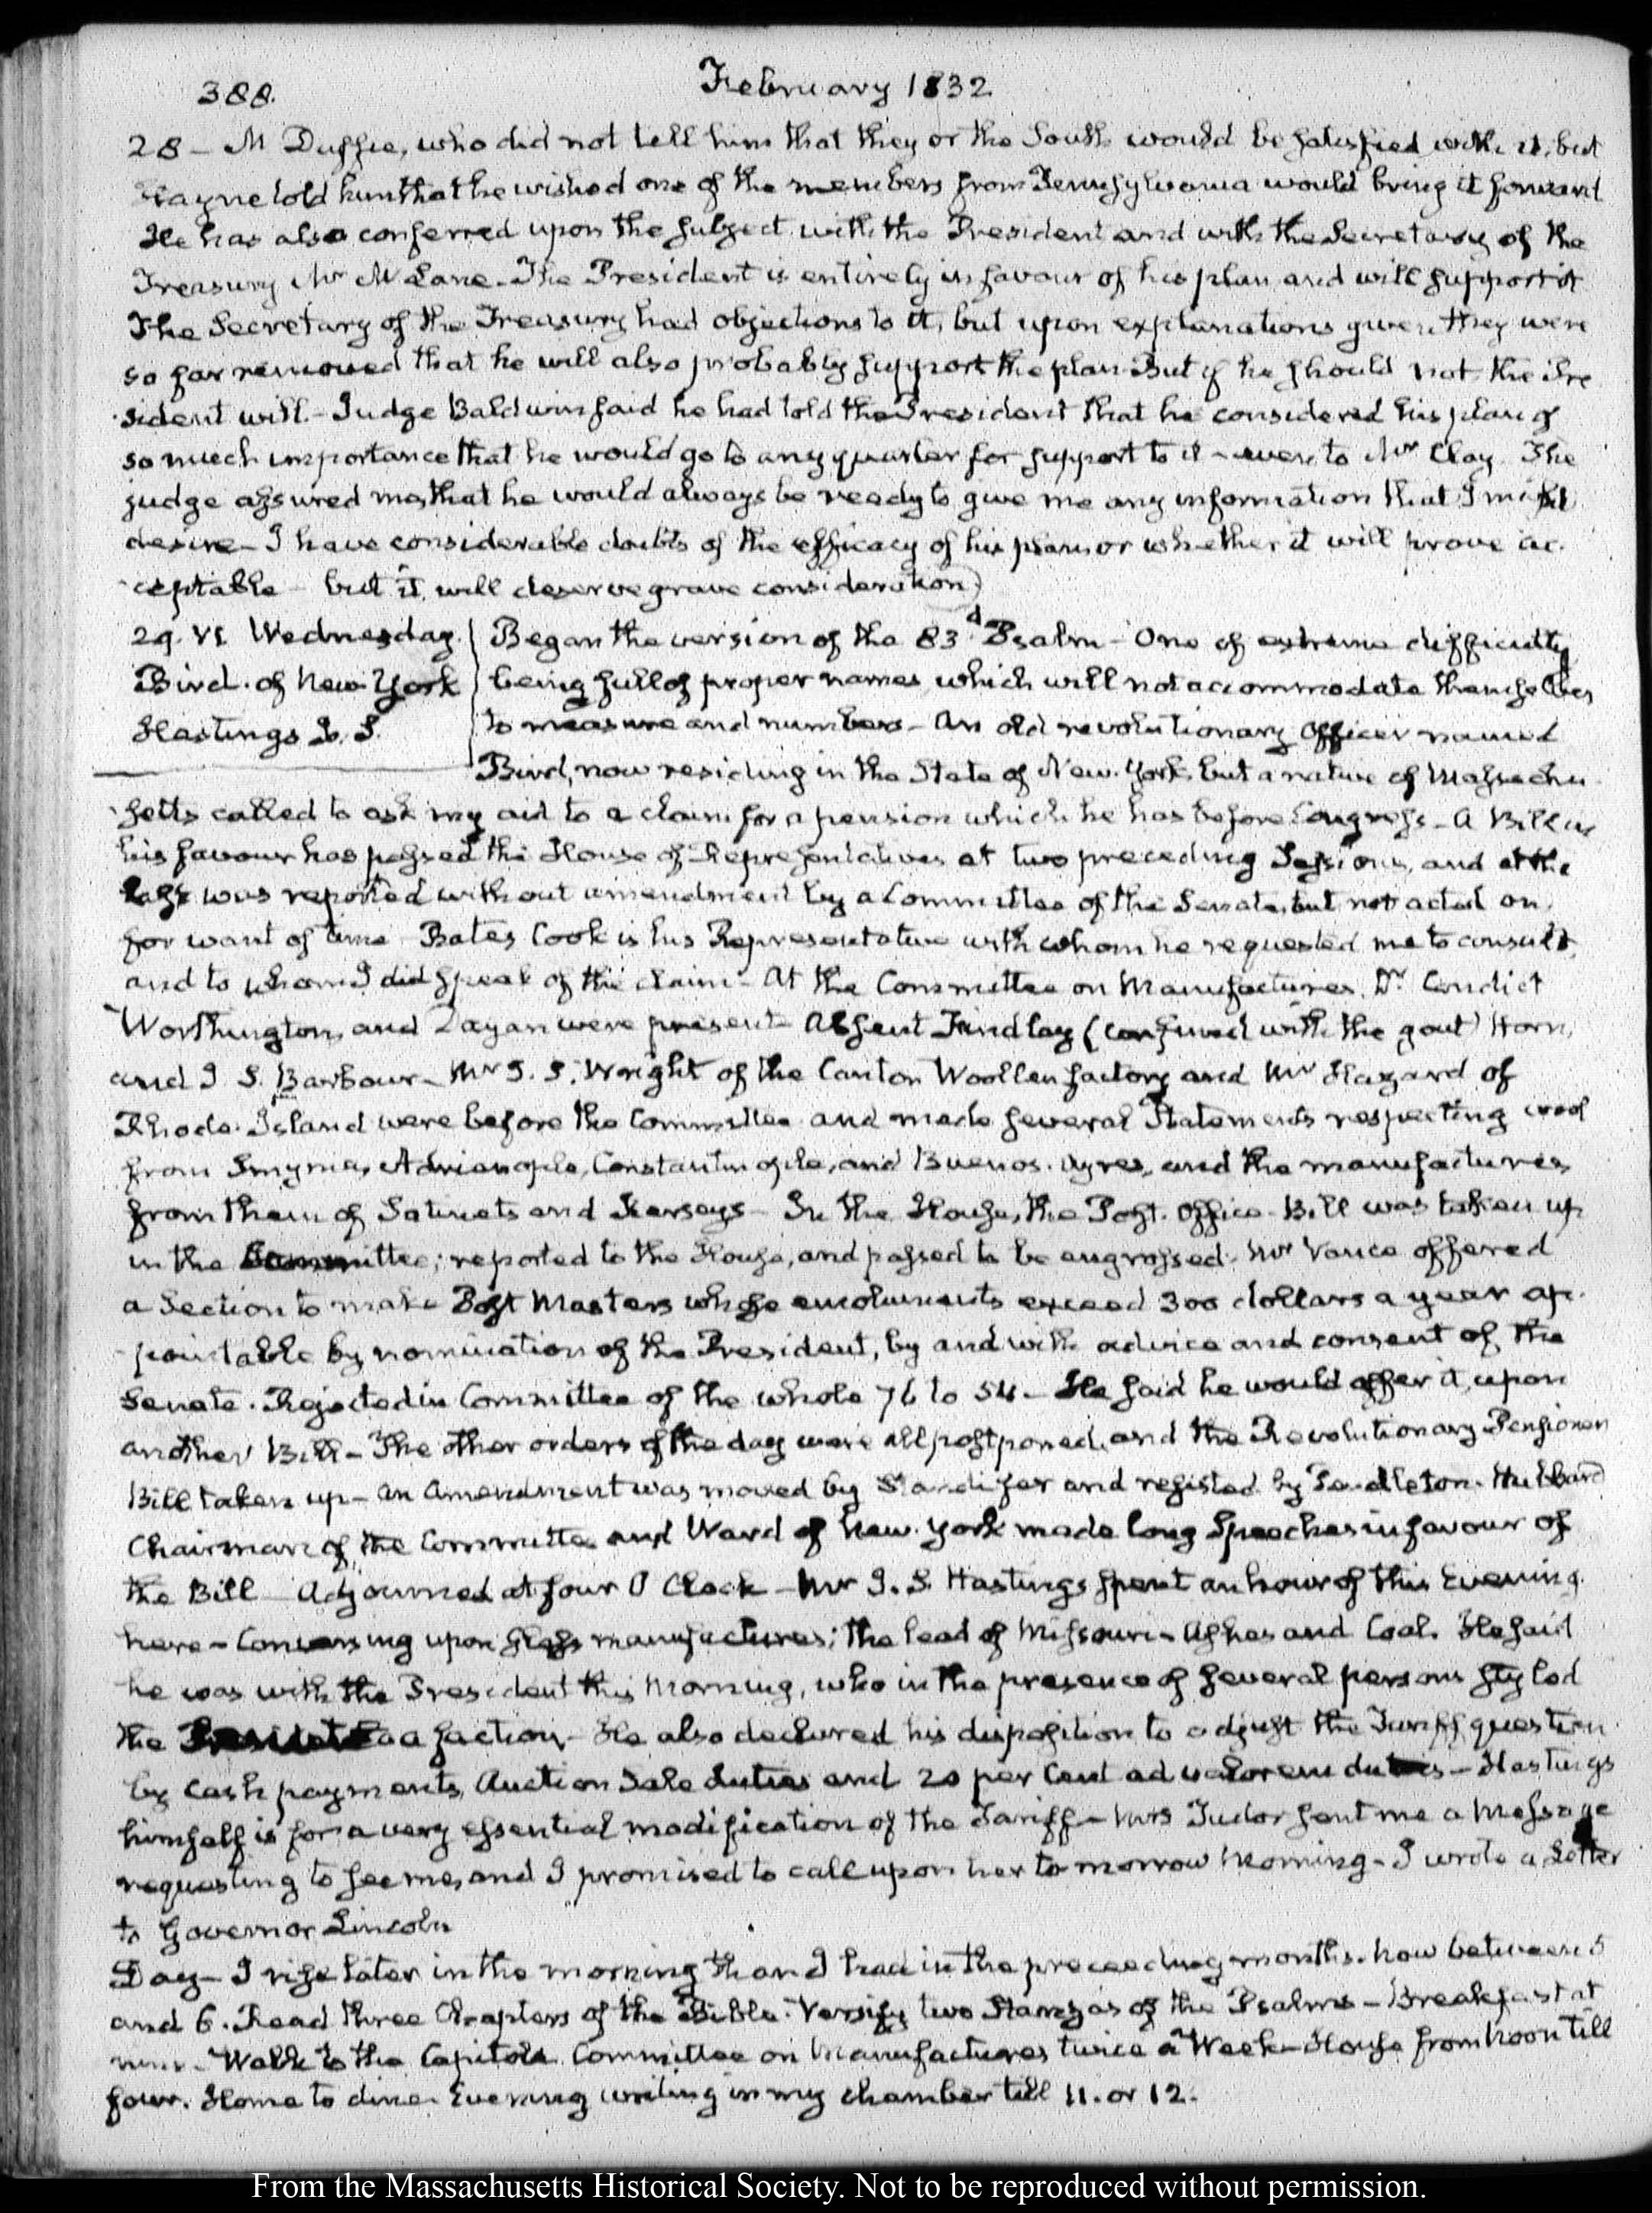 388.
February 1832
28 – Mc Duffie, who did not tell him that they or the South would be satisfied with it, but
Hayne told him that he wished one of the members from Pennsylvania would bring it forward
He has also conferred upon the subject with the President and with the Secretary of the
Treasury Mr McLane – The President is entirely in favour of his plan and will support it
The Secretary of the Treasury had objections to it, but upon explanations given they were
so far removed that he will also probably support the plan But if he should not, the Pre
sident will. – Judge Baldwin said he had told the President that he considered his plan of
so much importance that he would go to any quarter for support to it – even to Mr Clay. The
judge assured me, that he would always be ready to give me any information that I might
desire – I have considerable doubts of the efficacy of his plan or whether it will prove ac.
ceptable – but it will deserve grave consideration)
29. VI. Wednesday.
Bird. of New-York
Hastings S. S.
Began the version of the 83d. Psalm – One of extreme difficulty
being full of proper names which will not accommodate themselves
to measure and numbers – An old revolutionary Officer named
Bird, now residing in the State of New-York, but a native of Massachu
setts called to ask my aid to a claim for a pension which he has before Congress – A Bill in
his favour has passed the House of Representatives at two preceding Sessions, and at the
last was reported without amendment by a Committee of the Senate, but not acted on,
for want of time Bates Cook is his Representative with whom he requested me to consult,
and to whom I did speak of the claim – At the Committee on Manufactures, Dr Condict
Worthington, and Dayan were present – Absent Findlay (confined with the gout) Horn,
and J. S. Barbour – Mr J. S. Wright of the Canton Woollen factory and Mr Hazard of
Rhode-Island were before the Committee and made several Statements respecting wool
from Smyrna, Adrianople, Constantinople, and Buenos-Ayres, and the manufactures,
from them of Satinets and Kerseys – In the House, the Post-Office Bill was taken up
in the Committee; reported to the House, and passed to be engrossed. Mr Vance offered
a Section to make Post Masters whose emoluments exceed 300 dollars a year ap.
pointable by nomination of the President, by and with advice and consent of the
Senate. Rejected in Committee of the whole 76 to 54 – He said he would offer it, upon
another Bill – The other orders of the day were all postponed, and the Revolutionary Pensioner
Bill taken up – An Amendment was moved by Standifer and resisted by Pendleton. Hubbard
Chairman of the Committee and Ward of New-York made long Speeches in favour of
the Bill – Adjourned at four O'Clock – Mr S. S. Hastings spent an hour of this Evening
here – Conversing upon glass manufactures; the lead of Missouri – Ashes and Coal. He said
he was with the President this Morning, who in the presence of several persons styled
the a faction – He also declared his disposition to adjust the Tariff question
by cash payments, Auction Sale duties and 20 per Cent ad valorem duties – Hastings
himself is for a very essential modification of the Tariff – Mrs Tudor sent me a Message
requesting to see me, and I promised to call upon her to morrow Morning – I wrote a Letter
to Governor Lincoln
Day – I rise later in the morning than I had in the preceeding months. now between 5
and 6. Read three Chapters of the Bible. Versify two Stanzas of the Psalms – Breakfast at
nine – Walk to the Capitol. Committee on Manufactures twice a Week – House from Noon till
four. Home to dine. Evening writing in my chamber till 11. or 12.
From the Massachusetts Historical Society. Not to be reproduced without permission.